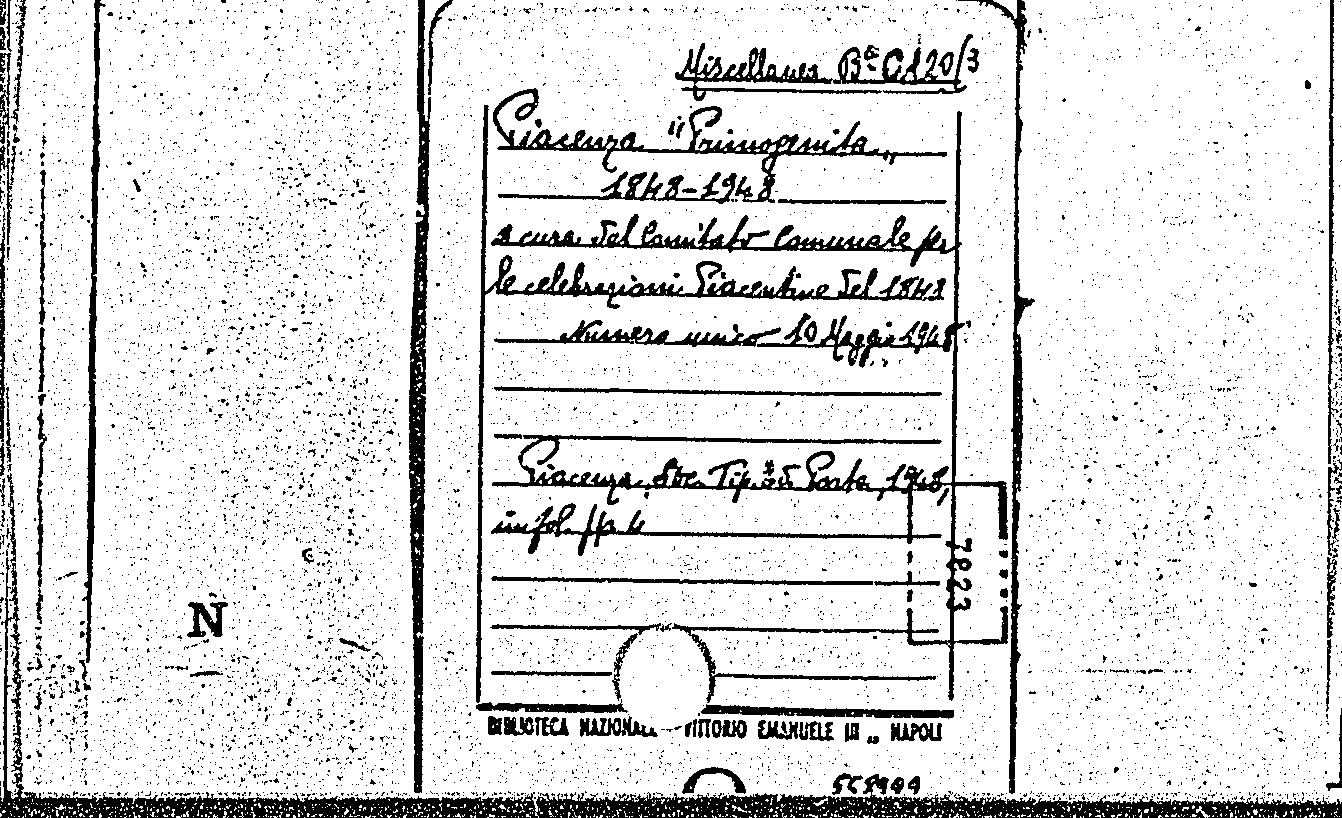 Miscellanea Bª CA 20/3
Piacenza "Primogenita„
1848-1948
a cura del Comitato Comunale per
le celebrazioni Piacentine del 1848
Numero unico 10 Maggio 1948
Piacenza, Tip. Porta, 1948,
in fol. pp. 4
7823
N
BIBLIOTECA NAZIONALE VITTORIO EMANUELE III „ NAPOLI